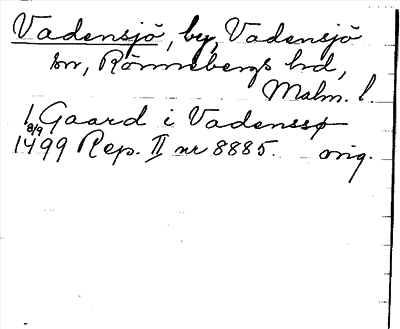 Vadensjö, by, Vadensjö
sn, Rönnebergs hd,
Malm. l.
1 Gaard i Vadenssø
8/9
1499 Rep. II nr 8885. orig.